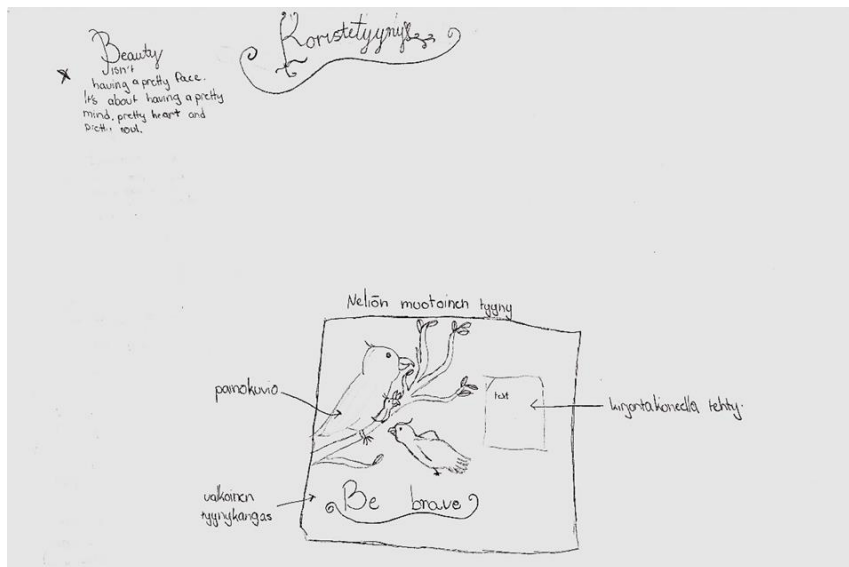 Koristetyyny
Beauty
isn't
having a pretty face.
It's about having a pretty
mind, pretty heart and
pretty soul.
Neliön muotoinen tyyny
painokuvio
text
kirjontakoneella tehty.
valkoinen
tyynykangas
Be brave